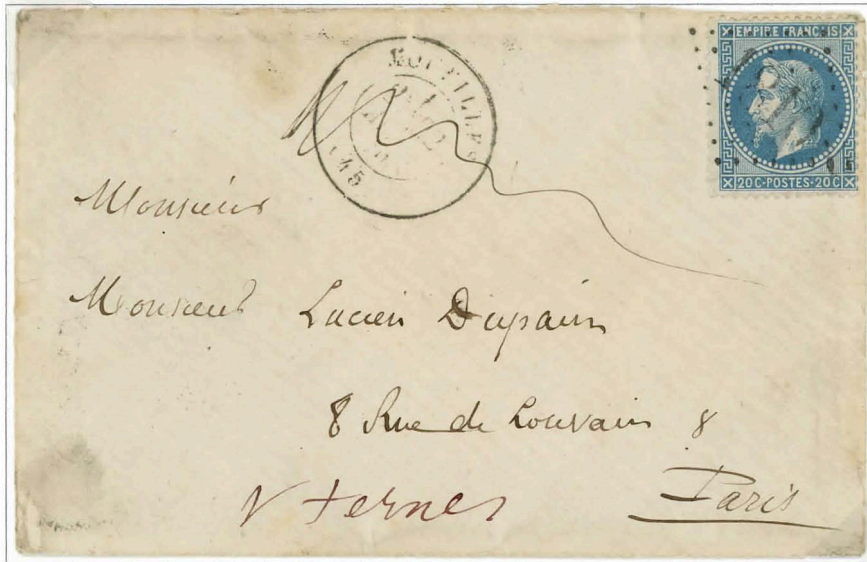 EMPIRE FRANÇAIS
20C·POSTES·20C
45
Monsieur
Monsieur Lucien Dupain
8 Rue de Louvain 8
Ternes
Paris